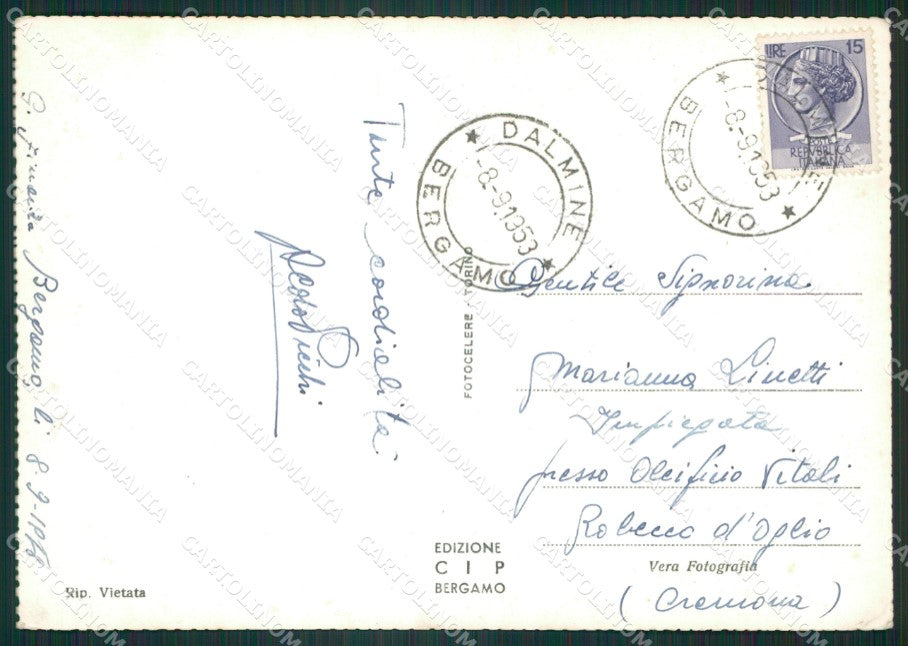 Bergamo, li 8-9-195
Tante cordialità
DALMINE
BERGAMO
-8-9.1953
BERGAMO
-8-9.1953
LIRE 15
REPVBBLICA
ITALIANA
Gentile Signorina
Marianna Linetti
Impiegata
presso Oleificio Vitali
Robecco d'Oglio
(Cremona)
FOTOCELERE - TORINO
EDIZIONE
C I P
BERGAMO
Vera Fotografia
Rip. Vietata
CARTOLINOMANIA